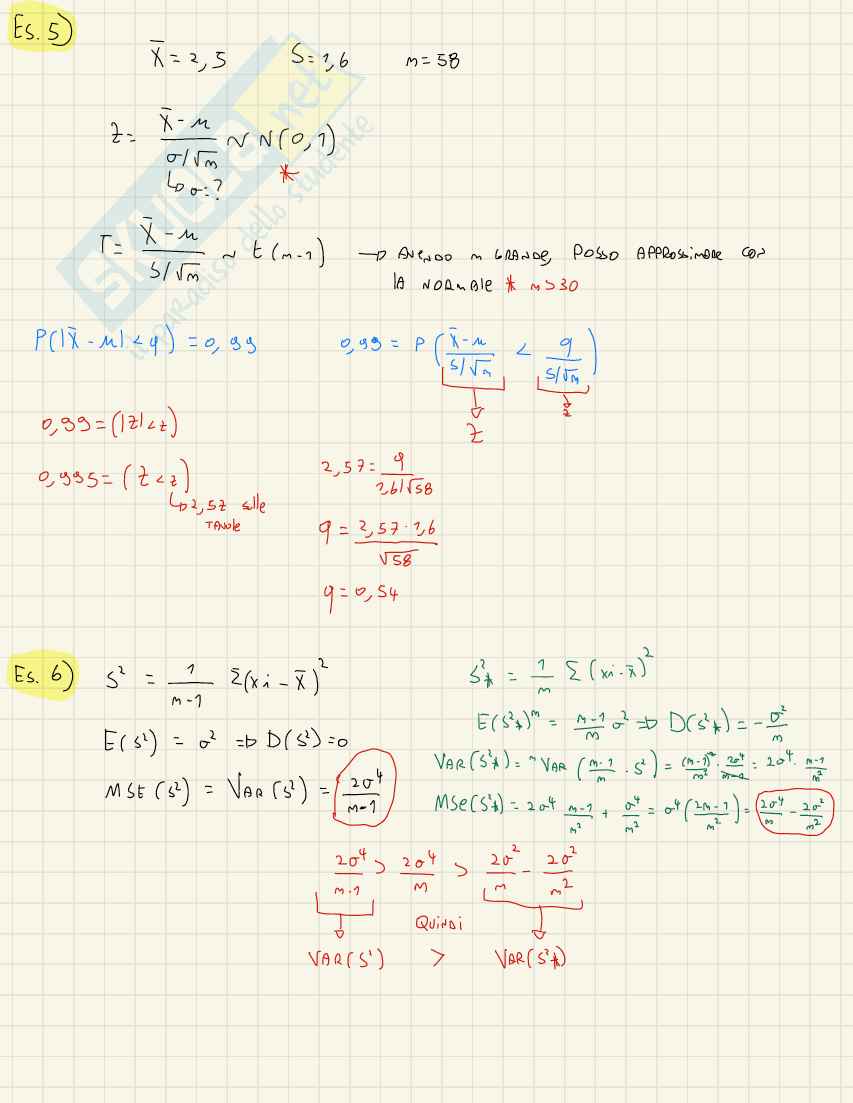 Es. 5)
X̄ = 2,5 S = 1,6 m = 58
Z = (X̄ - μ)/(σ/√m) ~ N(0,1)
↳ σ = ? *
T = (X̄ - μ)/(S/√m) ~ t(m-1) → AVENDO m GRANDE, POSSO APPROSSIMARE CON
LA NORMALE * m>30
P(|X̄ - μ| < q) = 0,99 0,99 = P((X̄ - μ)/(S/√m) < q/(S/√m))
Z z
0,99 = (|Z| < z)
0,995 = (Z < z)
↳ 2,57 sulle
TAVOLE
2,57 = q/(1,6/√58)
q = (2,57 · 1,6)/√58
q = 0,54
Es. 6)
S² = 1/(m-1) Σ(xi - x̄)²
E(S²) = σ² ⇒ D(S²) = 0
MSE(S²) = VAR(S²) = 2σ⁴/(m-1)
S²* = 1/m Σ(xi - x̄)²
E(S²*) = (m-1)/m σ² ⇒ D(S²*) = -σ²/m
VAR(S²*) = VAR((m-1)/m · S²) = (m-1)²/m² · 2σ⁴/(m-1) = 2σ⁴ · (m-1)/m²
MSe(S²*) = 2σ⁴ (m-1)/m² + σ⁴/m² = σ⁴((2m-1)/m²) = 2σ⁴/m - 2σ²/m²
2σ⁴/(m-1) > 2σ⁴/m > 2σ²/m - 2σ²/m²
QUINDI
VAR(S²) > VAR(S²*)
SKUOLA.net
il paradiso dello studente